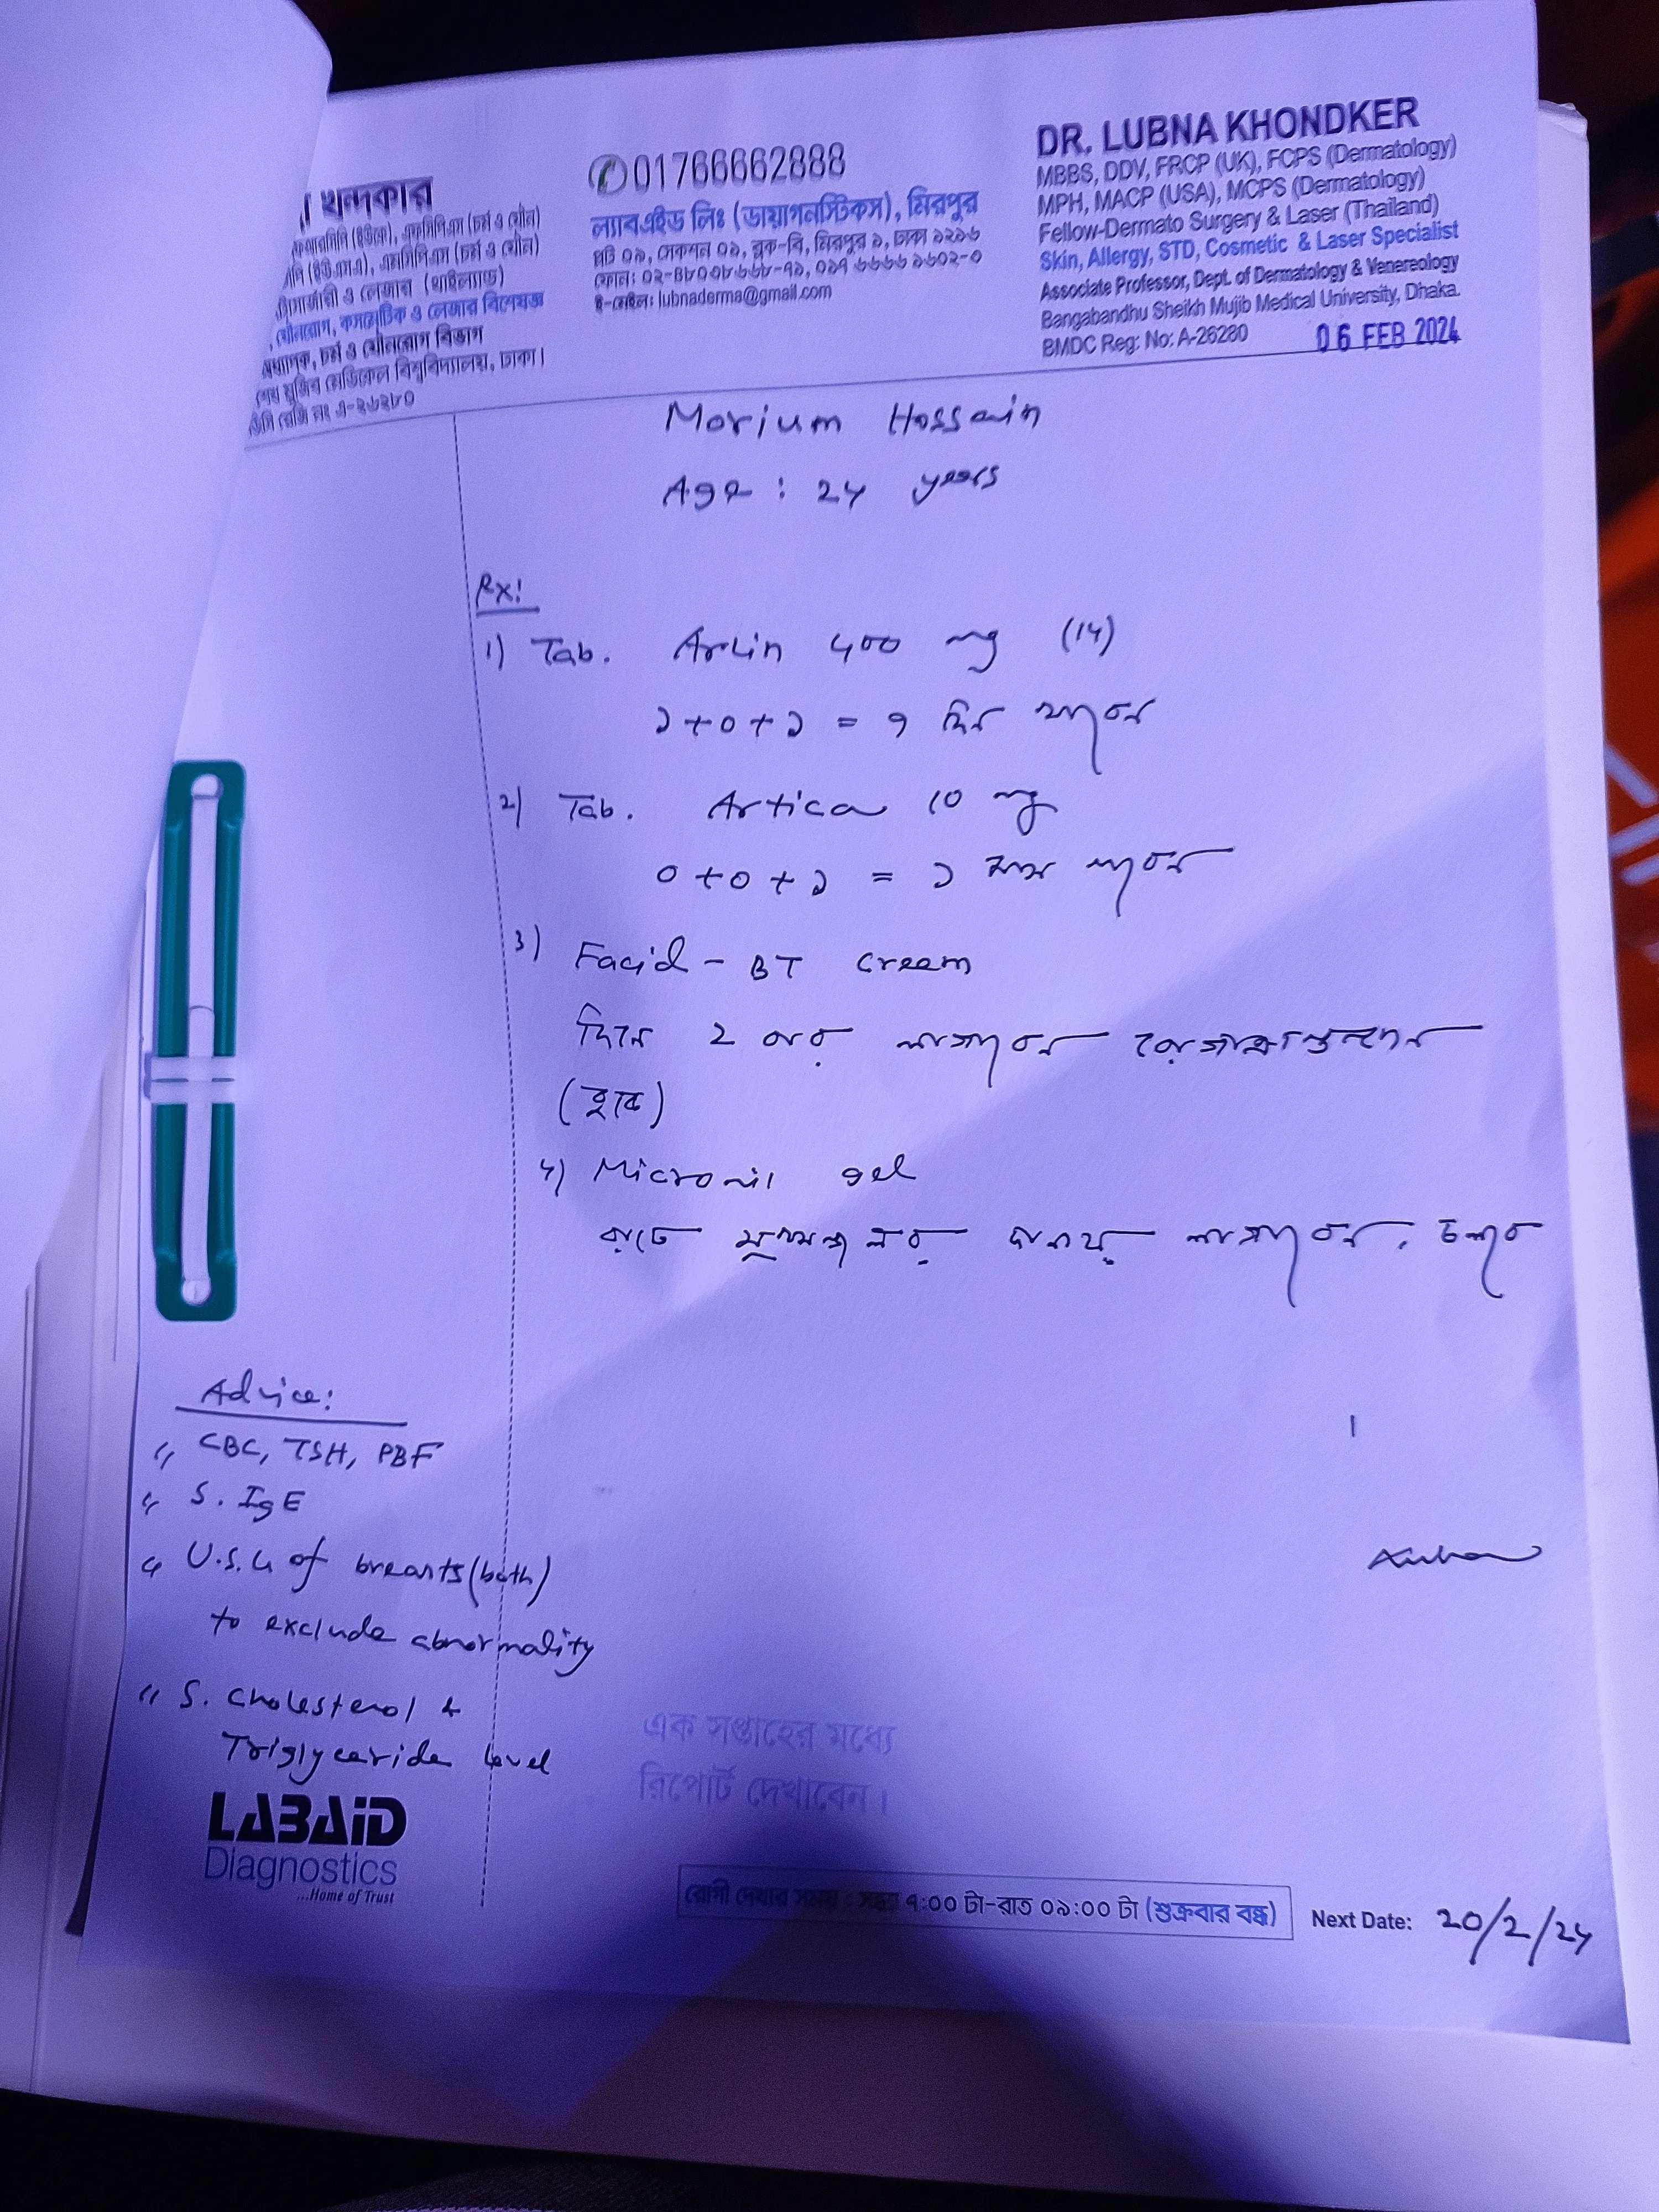 খন্দকার
এফসিপিএস (চর্ম ও যৌন)
এমসিপিএস (চর্ম ও যৌন)
ও লেজার (থাইল্যান্ড)
যৌনরোগ, কসমেটিক ও লেজার বিশেষজ্ঞ
চর্ম ও যৌনরোগ বিভাগ
শেখ মুজিব মেডিকেল বিশ্ববিদ্যালয়, ঢাকা।
রেজি নং এ-২৬২৮০
01766662888
ল্যাবএইড লিঃ (ডায়াগনস্টিকস), মিরপুর
প্লট ০১, সেকশন ০১, ব্লক-বি, মিরপুর ১, ঢাকা ১২১৬
ই-মেইল: lubnaderma@gmail.com
DR. LUBNA KHONDKER
MBBS, DDV, FRCP (UK), FCPS (Dermatology)
MPH, MACP (USA), MCPS (Dermatology)
Fellow-Dermato Surgery & Laser (Thailand)
Skin, Allergy, STD, Cosmetic & Laser Specialist
Associate Professor, Dept. of Dermatology & Venereology
Bangabandhu Sheikh Mujib Medical University, Dhaka.
BMDC Reg: No: A-26280
06 FEB 2024
Morium Hossain
Age : 24 years
Rx:
1) Tab. Arlin 400 mg (14)
১+০+১ = ৭ দিন খাবেন
2) Tab. Artica 10 mg
০+০+১ = ১ মাস খাবেন
3) Facid - BT cream
দিনে ২ বার লাগাবেন রোগাক্রান্তস্থানে
(ত্বকে)
4) Micronil gel
রাতে মুখমন্ডলের দানায় লাগাবেন, চলবে
Advice:
CBC, TSH, PBF
S. IgE
U.S.G of breasts (both)
to exclude abnormality
S. Cholesterol &
Triglyceride level
LABAID
Diagnostics
...Home of Trust
এক সপ্তাহের মধ্যে
রিপোর্ট দেখাবেন।
রোগী দেখার সময় : সন্ধ্যা ৭:০০ টা-রাত ০৯:০০ টা (শুক্রবার বন্ধ)
Next Date: 20/2/24